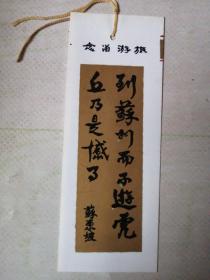 旅游留念
到蘇州而不遊虎
丘乃是憾事
蘇東坡